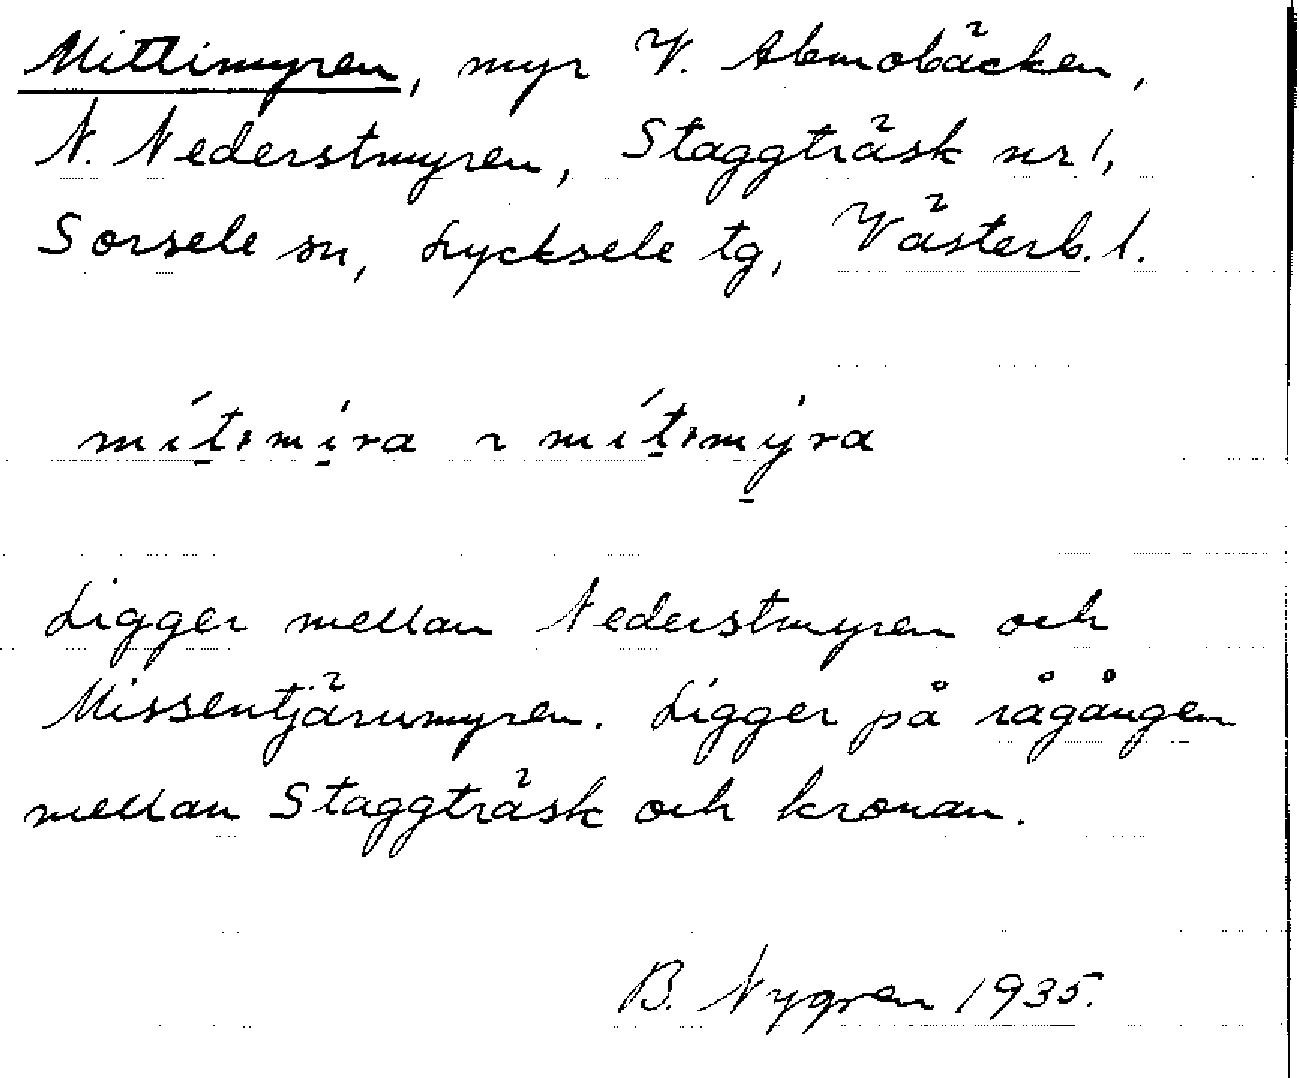 Mittimyren, myr V. Abmobäcken,
N. Nederstmyren, Staggträsk nr 1,
Sorsele sn, Lycksele tg, Västerb. l.
mít̠·mi̠ra ~ mít̠·my̠ra
Ligger mellan Nederstmyren och
Missentjärnmyren. Ligger på rågången
mellan Staggträsk och kronan.
B. Nygren 1935.